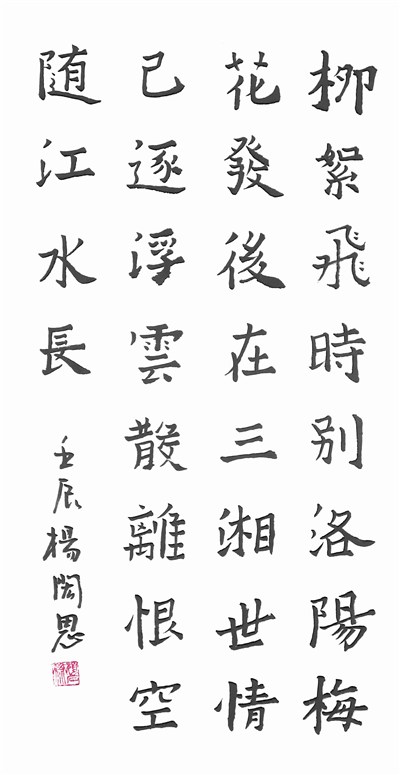 柳絮飛時別洛陽梅
花發後在三湘世情
已逐浮雲散離恨空
随江水長
壬辰楊闊思